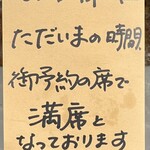 ただいまの時間、
御予約の席で
満席と
なっております